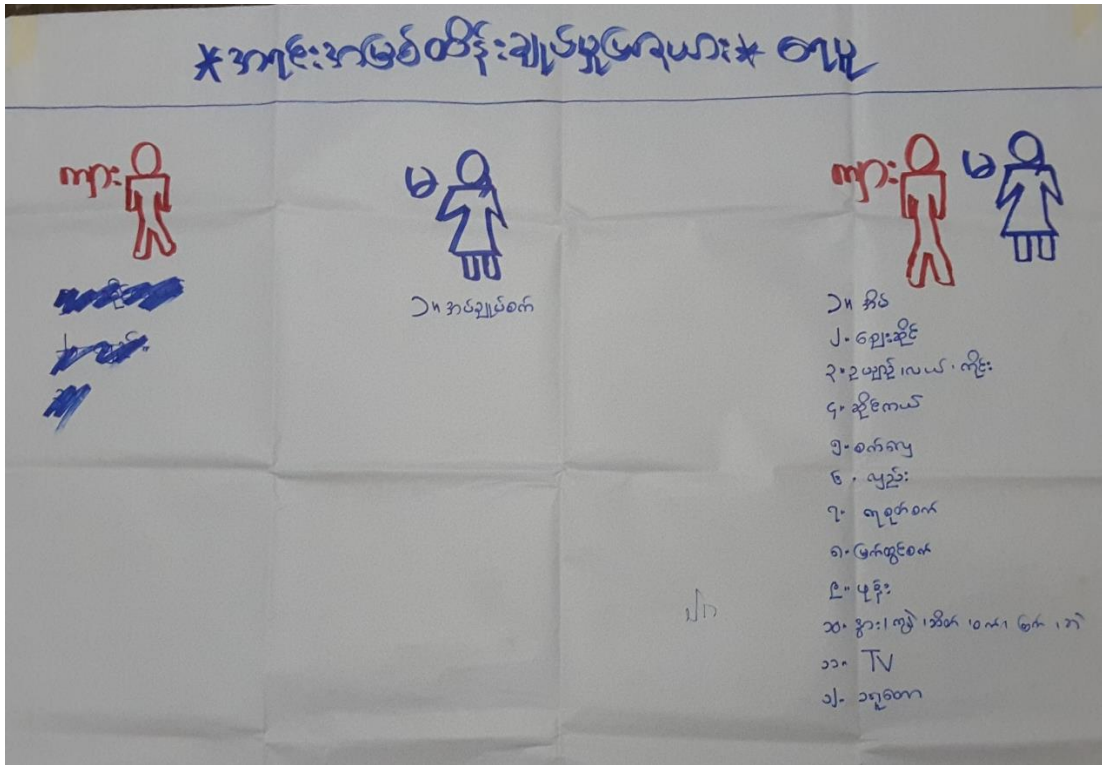 *အရင်းအမြစ်ထိန်းချုပ်မှုပြဇယား*
ကျား
မ
၁။ အပ်ချုပ်စက်
ကျား မ
၁။ အိမ်
၂။ ဈေးဆိုင်
၃။ ဥယျာဉ်၊လယ်၊ ကိုင်း
၄။ ဆိုင်ကယ်
၅။ စက်လှေ
၆။ လှည်း
၇။ ရေစုတ်စက်
၈။ မြက်ထွင်စက်
၉။ ဖုန်း
၁၀။ နွား၊ ကျွဲ၊ ဆိတ်၊ ဝက်၊ ကြက်၊ ဘဲ
၁၁။ TV
၁၂။